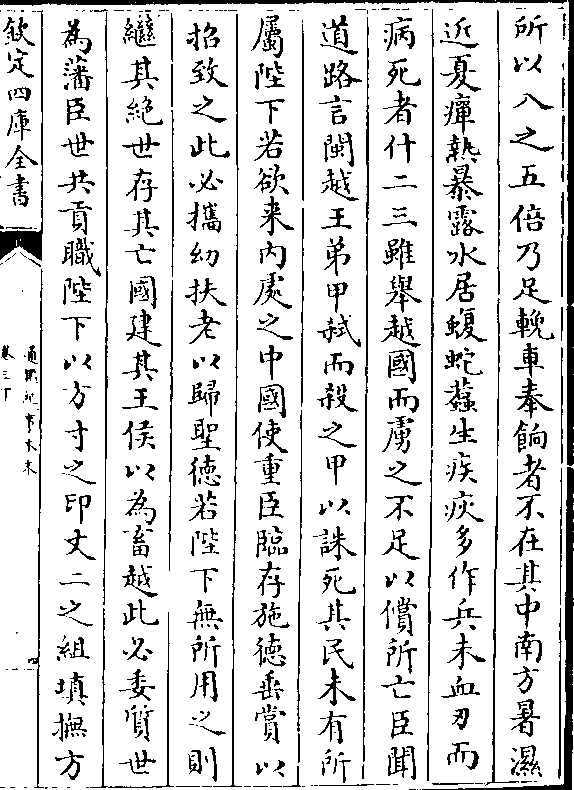 所以入之五倍乃足輓車奉餉者不在其中南方暑濕
近夏癉熱暴露水居蝮蛇蠚生疾疢多作兵未血刃而
病死者什二三雖舉越國而虜之不足以償所亡臣聞
道路言閩越王弟甲弒而殺之甲以誅死其民未有所
屬陛下若欲来内處之中國使重臣臨存施徳垂賞以
招致之此必攜幼扶老以歸聖徳若陛下無所用之則
繼其絶世存其亡國建其王侯以為畜越此必委質世
為藩臣世共貢職陛下以方寸之印丈二之組填撫方
欽定四庫全書
通鑑紀事本末
卷三下
四